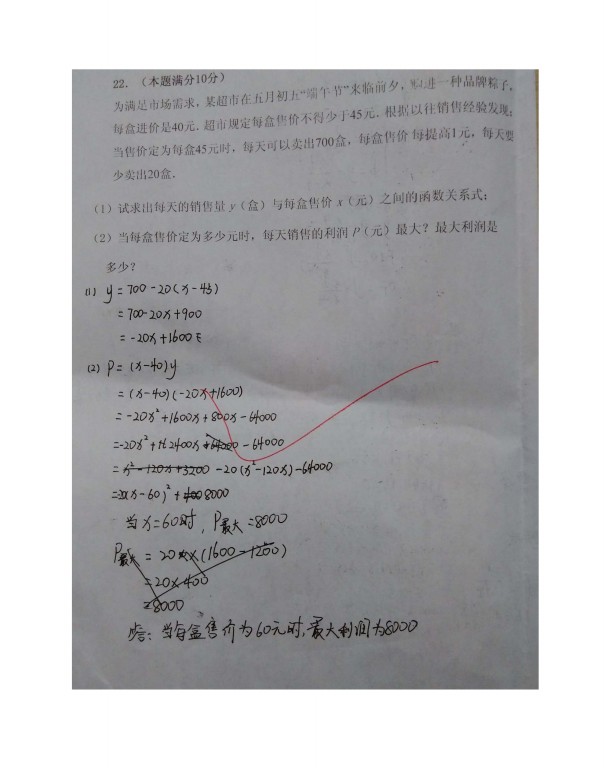 22. （本题满分10分）
为满足市场需求，某超市在五月初五“端午节”来临前夕，购进一种品牌粽子，
每盒进价是40元．超市规定每盒售价不得少于45元．根据以往销售经验发现；
当售价定为每盒45元时，每天可以卖出700盒，每盒售价每提高1元，每天要
少卖出20盒．
（1）试求出每天的销售量 y（盒）与每盒售价 x（元）之间的函数关系式；
（2）当每盒售价定为多少元时，每天销售的利润 P（元）最大？最大利润是
多少？
(1) y = 700 - 20(x - 45)
= 700 - 20x + 900
= -20x + 1600
(2) P = (x - 40)y
= (x - 40)(-20x + 1600)
= -20x² + 1600x + 800x - 64000
= -20x² + 2400x - 64000
= x² - 120x + 3200 -20(x² - 120x) - 64000
= -20(x - 60)² + 8000
当x = 60时，P最大 = 8000
P最大 = 20×(1600 - 1200)
= 20×400
= 8000
答：当每盒售价为60元时，最大利润为8000